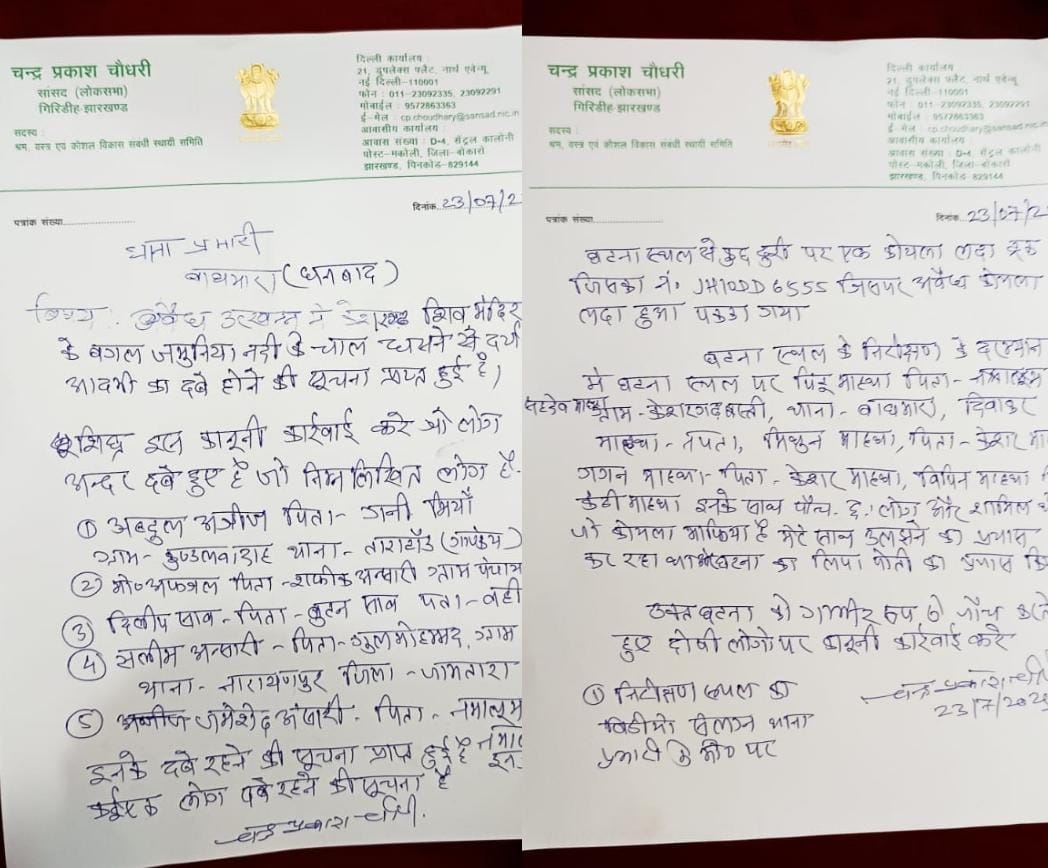 चन्द्र प्रकाश चौधरी
सांसद (लोकसभा)
गिरिडीह-झारखण्ड
सदस्य :
श्रम, वस्त्र एवं कौशल विकास संबंधी स्थायी समिति
दिल्ली कार्यालय :
21, डुपलेक्स फ्लैट, नार्थ एवेन्यू,
नई दिल्ली-110001
फोन : 011-23092335, 23092291
मोबाईल : 9572863363
ई-मेल : cp.choudhary@sansad.nic.in
आवासीय कार्यालय :
आवास संख्या : D-4, सेंट्रल कालोनी
पोस्ट-मकोली, जिला-बोकारो
झारखण्ड, पिनकोड-829144
पत्रांक संख्या
दिनांक 23/07/2
थाना प्रभारी
बाघमारा (धनबाद)
विषय : अवैध उत्खनन में केशरगढ़ शिव मंदिर
के बगल जमुनिया नदी के चाल धसने से दर्जनों
आदमी का दबे होने की सूचना प्राप्त हुई है।
शिघ्र इस कानूनी कार्रवाई करे जो लोग
अन्दर दबे हुए है जो निम्न लिखित लोग है-
① अब्दुल अजीज पिता- गनी मियाँ
ग्राम- थाना- ताराटाँड
② मो० अफजल पिता- शफीक अन्सारी ग्राम
③ दिलीप साव- पिता- साव पता- वही
④ सलीम अन्सारी - पिता- गुल मोहम्मद, ग्राम
थाना- नारायणपुर जिला- जामतारा
⑤ जमशेद अंसारी- पिता- नमालूम
इनके दबे रहने की सूचना प्राप्त हुई है
लोग दबे रहने की सूचना है
चन्द्र प्रकाश चौधरी
चन्द्र प्रकाश चौधरी
सांसद (लोकसभा)
गिरिडीह-झारखण्ड
सदस्य :
श्रम, वस्त्र एवं कौशल विकास संबंधी स्थायी समिति
दिल्ली कार्यालय :
21, डुपलेक्स फ्लैट, नार्थ एवेन्यू,
नई दिल्ली-110001
फोन : 011-23092335, 23092291
मोबाईल : 9572863363
ई-मेल : cp.choudhary@sansad.nic.in
आवासीय कार्यालय :
आवास संख्या : D-4, सेंट्रल कालोनी
पोस्ट-मकोली, जिला-बोकारो
झारखण्ड, पिनकोड-829144
पत्रांक संख्या
दिनांक 23/07/2
घटना स्थल से कुछ दुरी पर एक कोयला लदा ट्रक
जिसका नं. JH10DD6555 जिसपर अवैध कोयला
लदा हुआ पकड़ा गया
घटना स्थल के निरीक्षण के दरम्यान
में घटना स्थल पर पिंटू माहथा पिता-
ग्राम- केशरगढ़ बस्ती, थाना- बाघमारा, दिवाकर
माहथा- पिता, मिथुन माहथा, पिता- केशर
गगन माहथा- पिता- केशर माहथा, विपिन माहथा
माहथा इनके साथ पाँच छः लोग और शामिल थे
जो कोयला माफिया है मेरे साथ उलझने का प्रयास
कर रहा था घटना का लिपा पोती का प्रयास
उक्त घटना को गम्भीर रूप से जाँच करते
हुए दोषी लोगो पर कानूनी कार्रवाई करे
① निरीक्षण स्थल का
विडीयो संलग्न थाना
प्रभारी के मो० पर
चन्द्र प्रकाश चौधरी
23/7/202